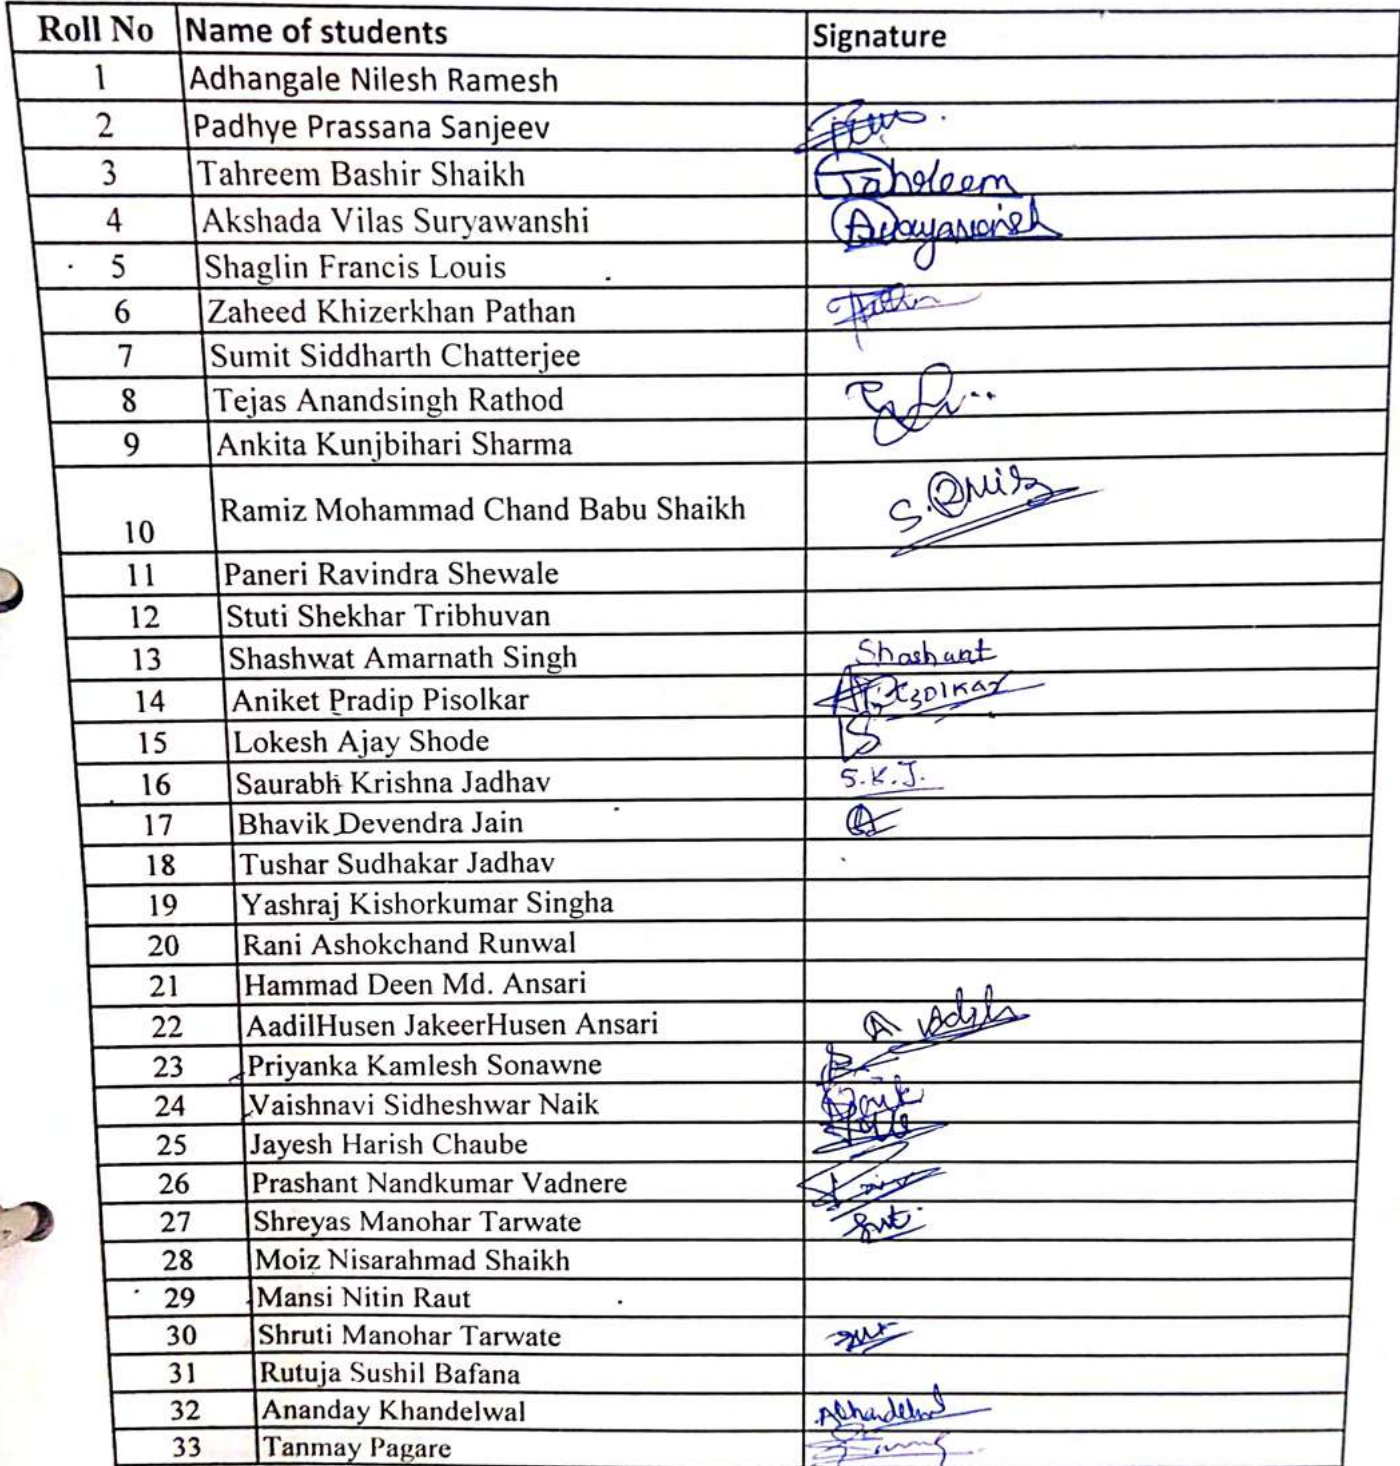 Roll No Name of students Signature
1 Adhangale Nilesh Ramesh
2 Padhye Prassana Sanjeev
3 Tahreem Bashir Shaikh Tahreem
4 Akshada Vilas Suryawanshi
5 Shaglin Francis Louis
6 Zaheed Khizerkhan Pathan
7 Sumit Siddharth Chatterjee
8 Tejas Anandsingh Rathod
9 Ankita Kunjbihari Sharma
10 Ramiz Mohammad Chand Babu Shaikh
11 Paneri Ravindra Shewale
12 Stuti Shekhar Tribhuvan
13 Shashwat Amarnath Singh
14 Aniket Pradip Pisolkar
15 Lokesh Ajay Shode
16 Saurabh Krishna Jadhav S.K.J.
17 Bhavik Devendra Jain
18 Tushar Sudhakar Jadhav
19 Yashraj Kishorkumar Singha
20 Rani Ashokchand Runwal
21 Hammad Deen Md. Ansari
22 AadilHusen JakeerHusen Ansari
23 Priyanka Kamlesh Sonawne
24 Vaishnavi Sidheshwar Naik
25 Jayesh Harish Chaube
26 Prashant Nandkumar Vadnere
27 Shreyas Manohar Tarwate
28 Moiz Nisarahmad Shaikh
29 Mansi Nitin Raut
30 Shruti Manohar Tarwate
31 Rutuja Sushil Bafana
32 Ananday Khandelwal
33 Tanmay Pagare